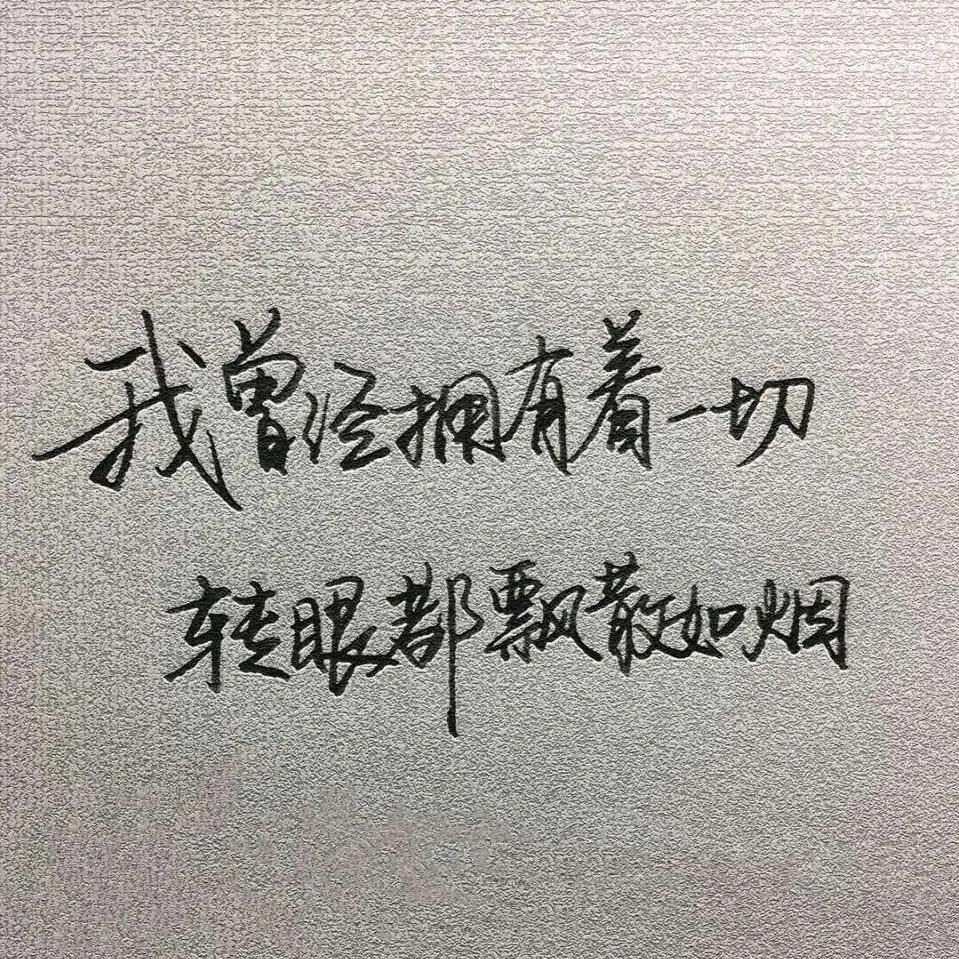 我曾经拥有着一切
转眼都飘散如烟